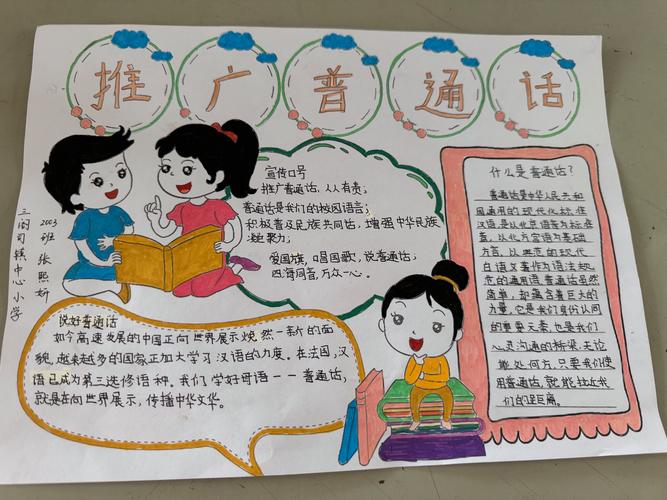 推广普通话
宣传口号
推广普通话，人人有责；
普通话是我们的校园语言；
积极普及民族共同话，增强中华民族
凝聚力；
爱国旗，唱国歌，说普通话；
四海同音，万众一心。
什么是普通话？
普通话是中华人民共和
国通用的现代化标准
汉语，是以北京语音为标准
音，以北方官话为基础
方言，以典范的现代
白话文著作为语法规
范的通用语，普通话虽然
简单，却蕴含着巨大的
力量，它是我们身份认同
的重要元素，也是我们
心灵沟通的桥梁，无论
能处何方，只要我们使
用普通话，就能拉近我
们的距离。
说好普通话
如今高速发展的中国正向世界展示焕然一新的面
貌，越来越多的国家正加大学习汉语的力度。在法国，汉
语已成为第三选修语种。我们学好母语－－普通话，
就是在向世界展示，传播中华文华。
2003班 张熙妍
三阁司镇中心小学